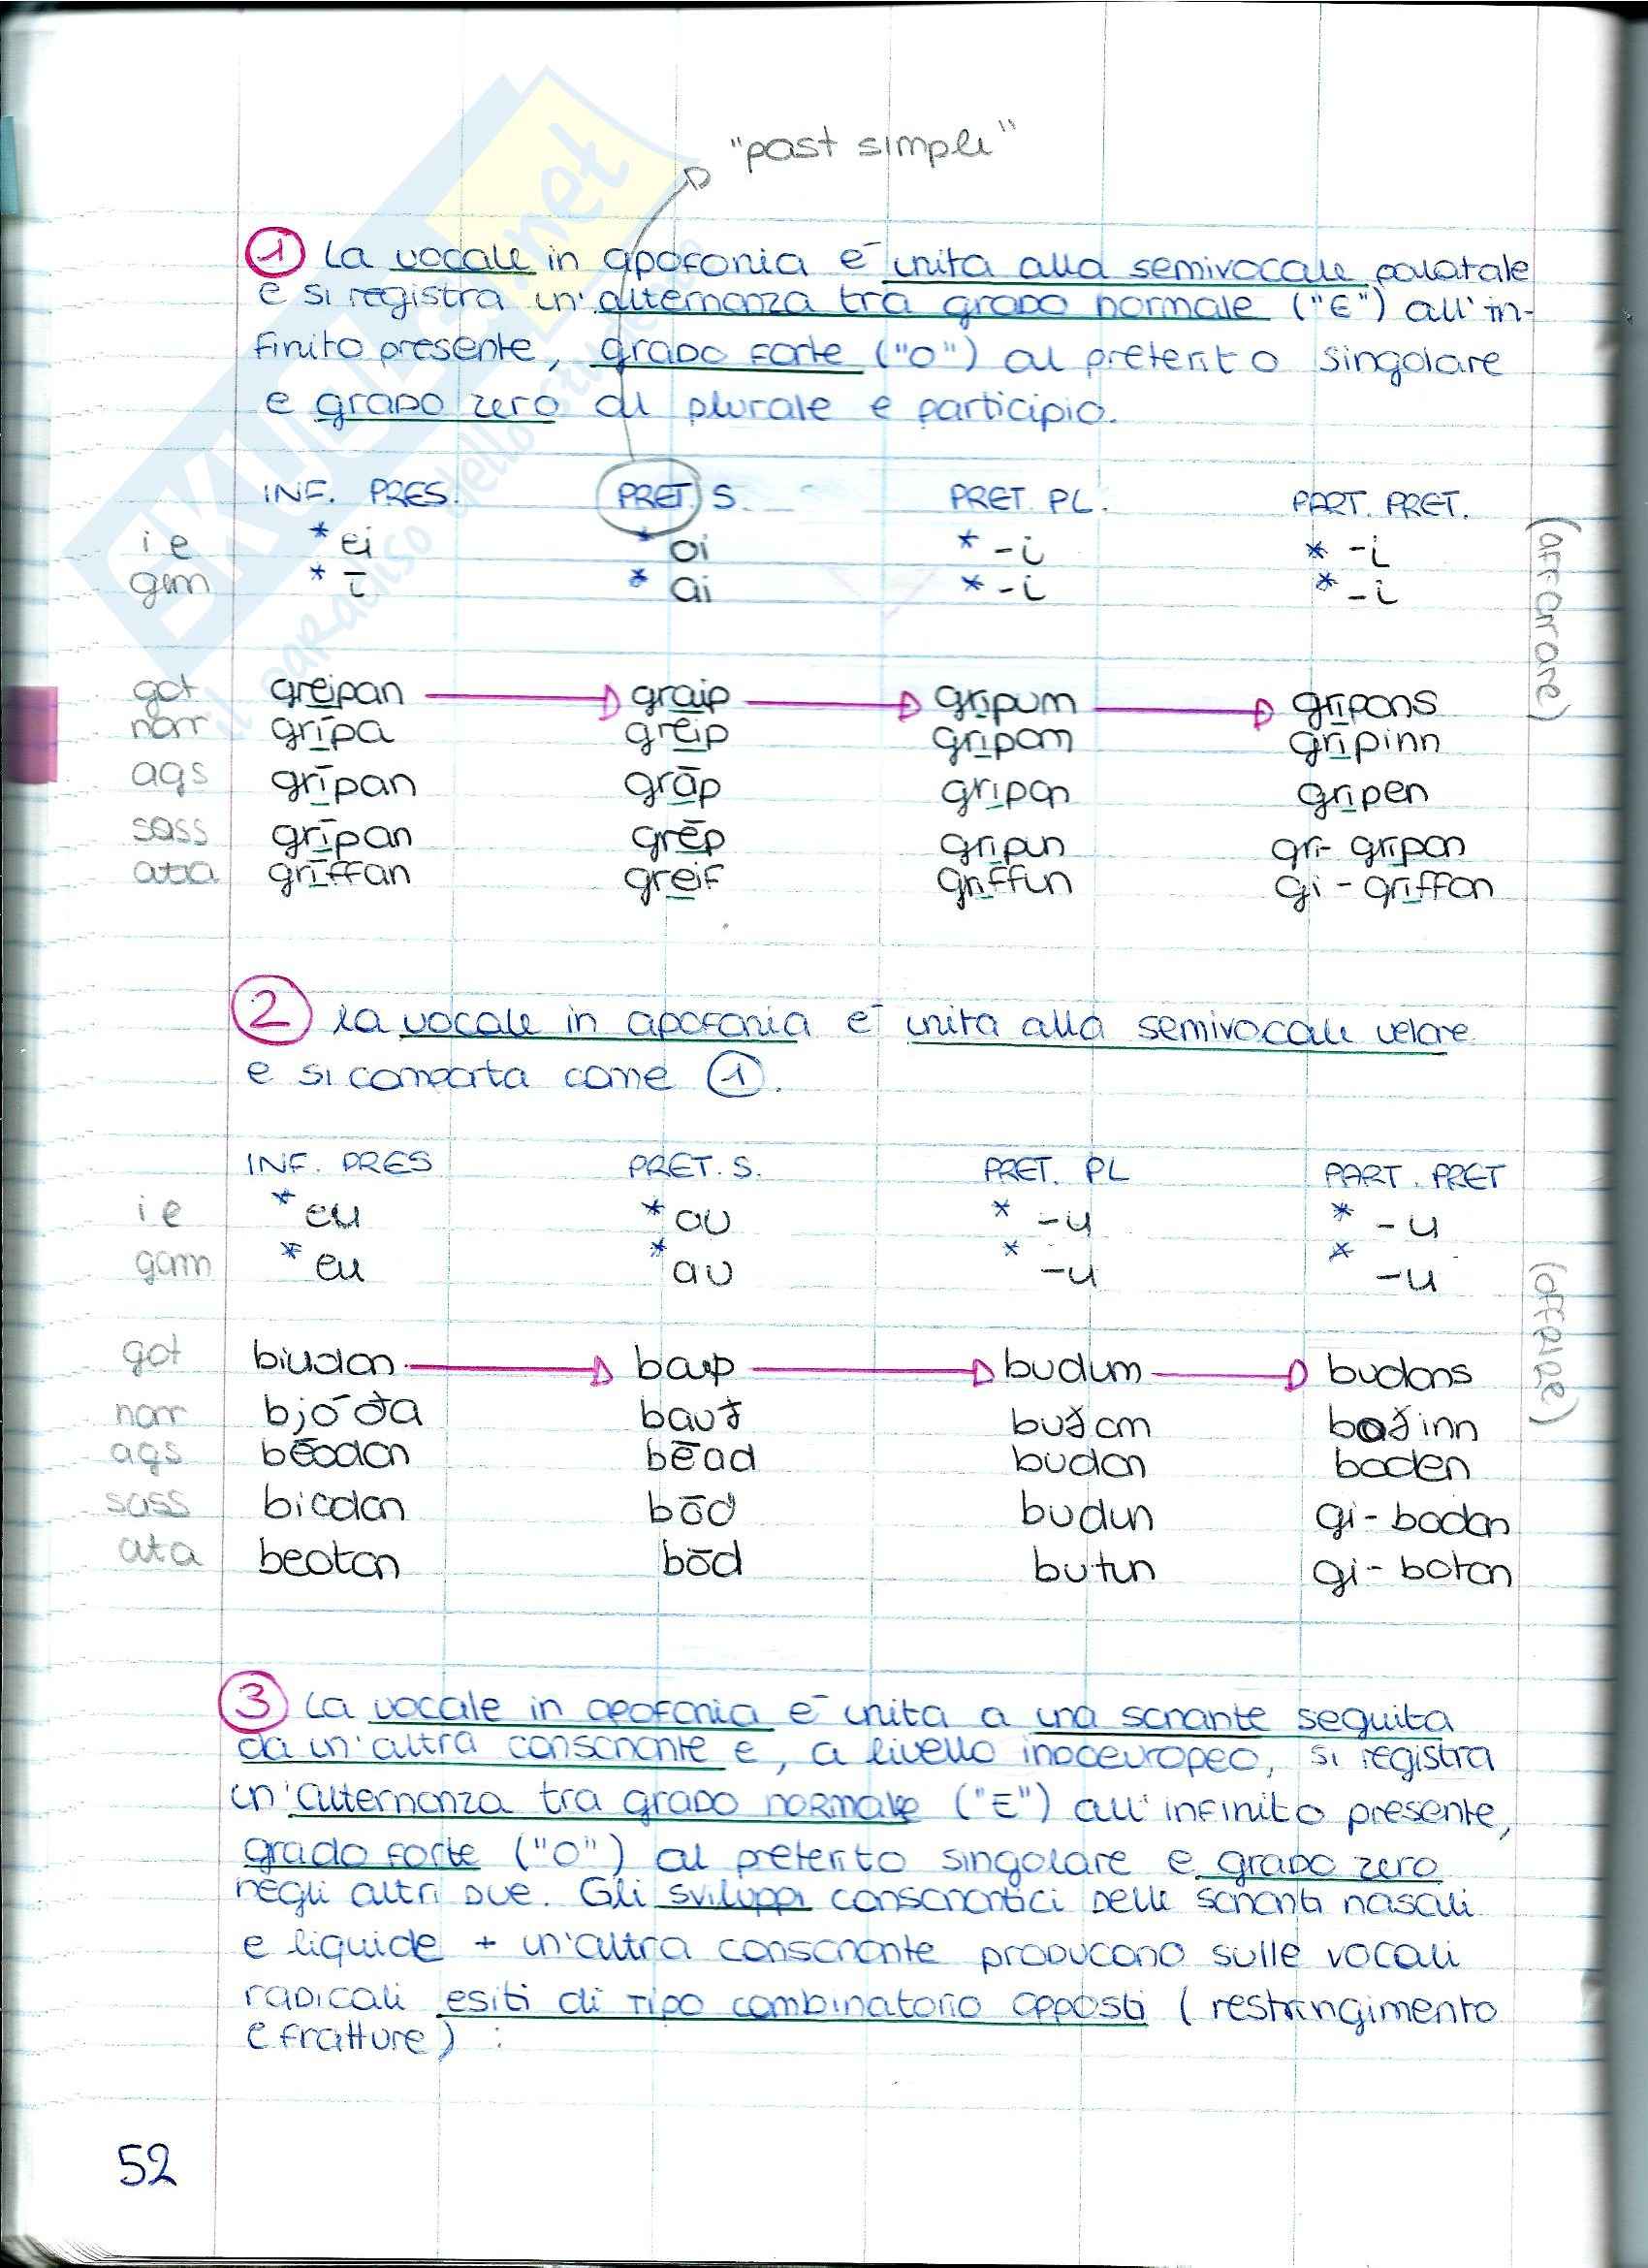 "past simple"
① La vocale in apofonia è unita alla semivocale palatale
e si registra un'alternanza tra grado normale ("E") all'in-
finito presente, grado forte ("O") al preterito singolare
e grado zero al plurale e participio.
INF. PRES. PRET. S. PRET. PL. PART. PRET.
ie *ei *oi *-i *-i
germ *ī *ai *-i *-i
(afferrare)
got greipan graip gripum gripans
norr grīpa greip gripom gripinn
ags grīpan grāp gripan gripen
sass grīpan grēp gripun gri- gripan
ata grīffan greif griffun gi-griffan
② La vocale in apofonia è unita alla semivocale velare
e si comporta come ①.
INF. PRES PRET. S. PRET. PL PART. PRET
ie *eu *ou *-u *-u
germ *eu *au *-u *-u
(offrire)
got biudan bauþ budum budans
norr bjóða bauð buðom boðinn
ags bēodan bēad budon boden
sass biodan bōd budun gi-bodan
ata beotan bōd butun gi-botan
③ La vocale in apofonia è unita a una sonante seguita
da un'altra consonante e, a livello indoeuropeo, si registra
un'alternanza tra grado normale ("E") all'infinito presente,
grado forte ("O") al preterito singolare e grado zero
negli altri due. Gli sviluppi consonantici delle sonanti nasali
e liquide + un'altra consonante producono sulle vocali
radicali esiti di tipo combinatorio opposti (restringimento
e fratture) :
52
SKUOLA.net
il paradiso dello studente